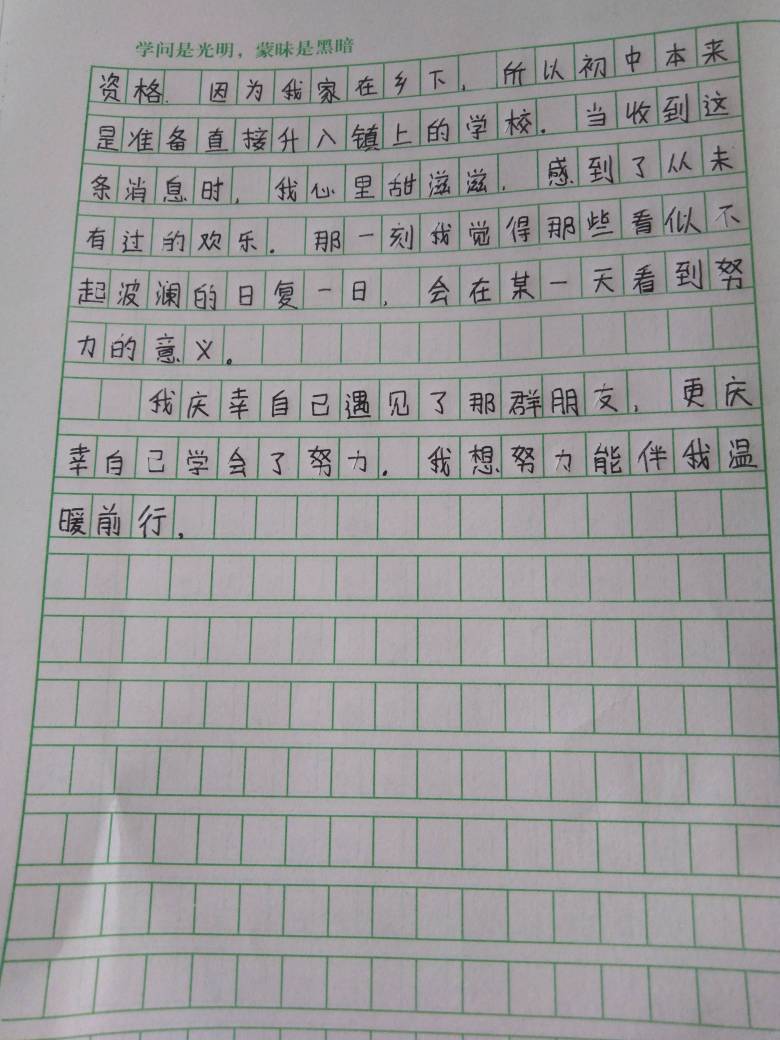 学问是光明，蒙昧是黑暗
资格. 因为我家在乡下, 所以初中本来
是准备直接升入镇上的学校. 当收到这
条消息时, 我心里甜滋滋, 感到了从未
有过的欢乐. 那一刻我觉得那些看似不
起波澜的日复一日, 会在某一天看到努
力的意义。
我庆幸自己遇见了那群朋友, 更庆
幸自己学会了努力. 我想努力能伴我温
暖前行.